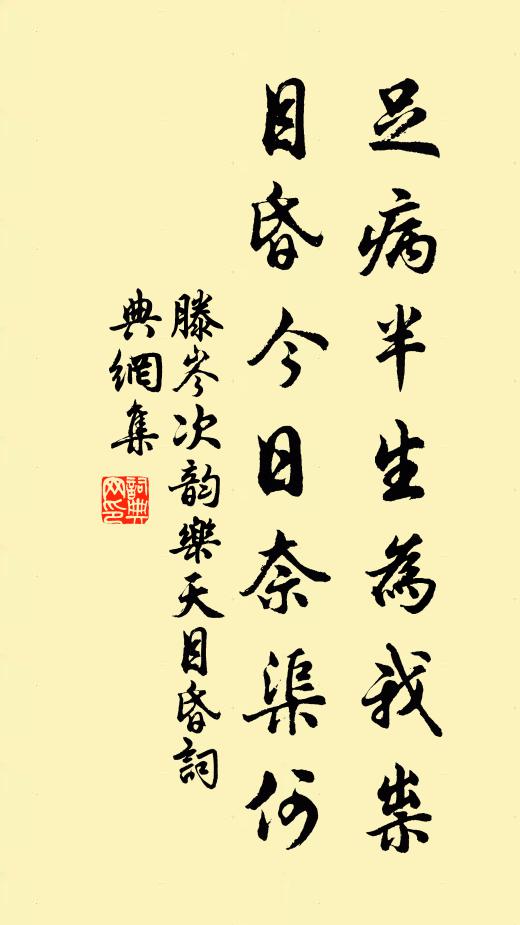 足病半生為我祟
目昏今日奈渠何
滕岑次韵樂天目昏詞
典網集
詞典網印